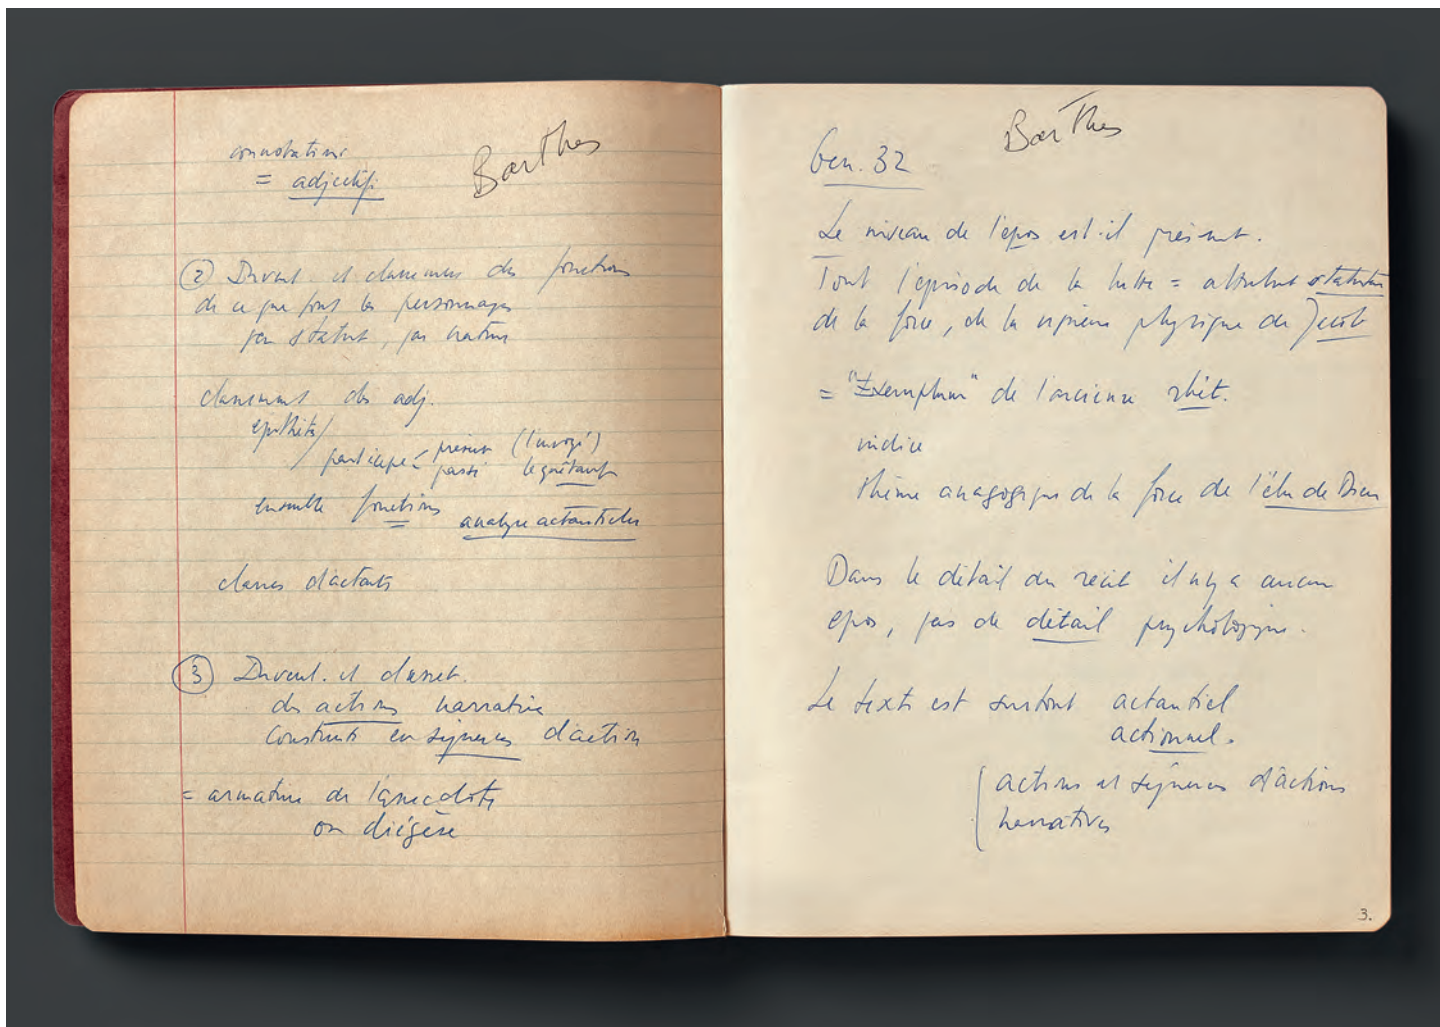 Barthes
connotations
= adjectifs
② Invent. et classement des fonctions
de ce que font les personnages
par statut, par nature
classement des adj.
épithète /
participe - présent (l'envoyé)
passé le guettant
ensemble fonctions analyse actantielle
classes d'actants
③ Invent. et classet.
des actions narratives
construits en séquences d'action
= armature de l'anecdote
ou diégèse
Barthes
Gen. 32
Le niveau de l'épos est-il présent.
Tout l'épisode de la lutte = attribut statutaire
de la force, de la vigueur physique de Jacob
= "Exemplum" de l'ancienne rhét.
indice
thème anagogique de la force de l'élu de Dieu
Dans le détail du récit il n'y a aucun
epos, pas de détail psychologique.
Le texte est surtout actantiel
actionnel.
( actions et séquences d'actions
narratives
3.